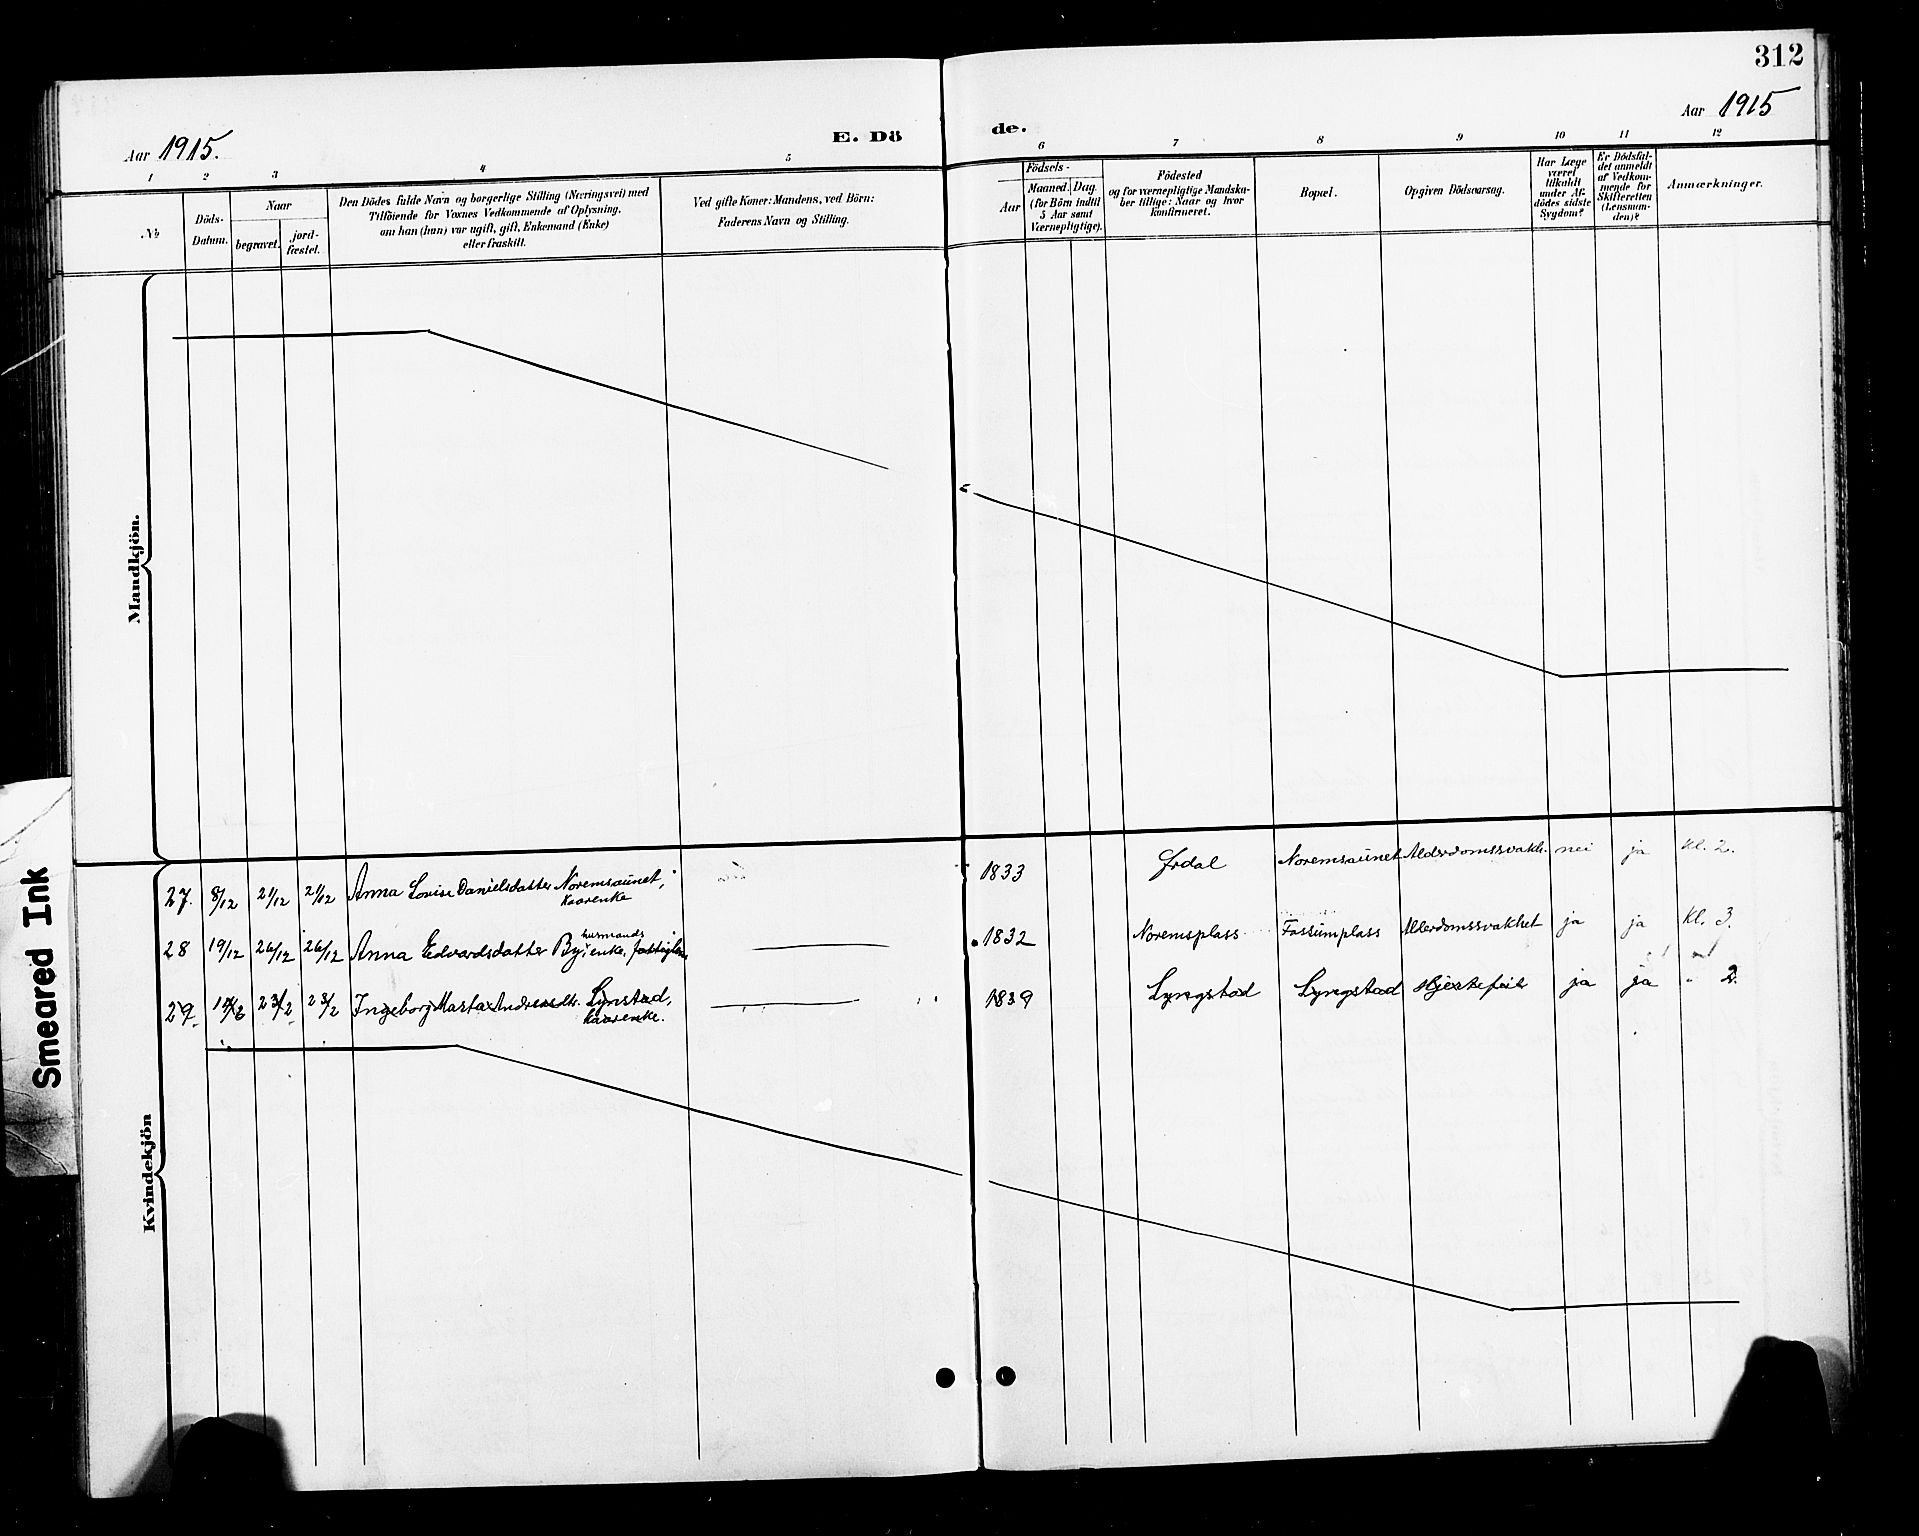 312
Aar 1915.
E. Dö
de.
Aar 1915
1 2 3 4 5 6 7 8 9 10 11 12
No
Döds-
Datum.
Naar
begravet.
jord-
fæstet.
Den Dödes fulde Navn og borgerlige Stilling (Næringsvei) med
Tilföiende for Voxnes Vedkommende af Oplysning,
om han (hun) var ugift, gift, Enkemand (Enke)
eller fraskilt.
Ved gifte Koner: Mandens, ved Börn:
Faderens Navn og Stilling.
Födsels-
Aar
Maaned. Dag.
(for Börn indtil
5 Aar samt
Værnepligtige).
Födested
og for værnepligtige Mandska-
ber tillige: Naar og hvor
konfirmeret.
Bopæl.
Opgiven Dödsaarsag.
Har Læge
været
tilkaldt
under Af-
dödes sidste
Sygdom?
Er Dödsfal-
det anmeldt
af Vedkom-
mende for
Skifteretten
(Lensman-
den)?
Anmærkninger.
Mandkjön.
Smeared Ink
Kvindekjön
27. 8/12 21/12 21/12 Anna Lovise Danielsdatter Noremsaunet, 1833 Ordal Noremsaunet Alderdomssvakh. nei ja kl. 2.
kaarenke
husmands
28 19/12 26/12 26/12 Anna Edvardsdatter By, enke, 1832 Noremsplass Fossumplass Alderdomssvakhet ja ja kl. 3.
29. 23/12 23/12 Ingeborg Marta Andreasdtr. Lynstad, 1839 Lyngstad Lyngstad Hjertefeil ja ja " 2.
kaarenke.